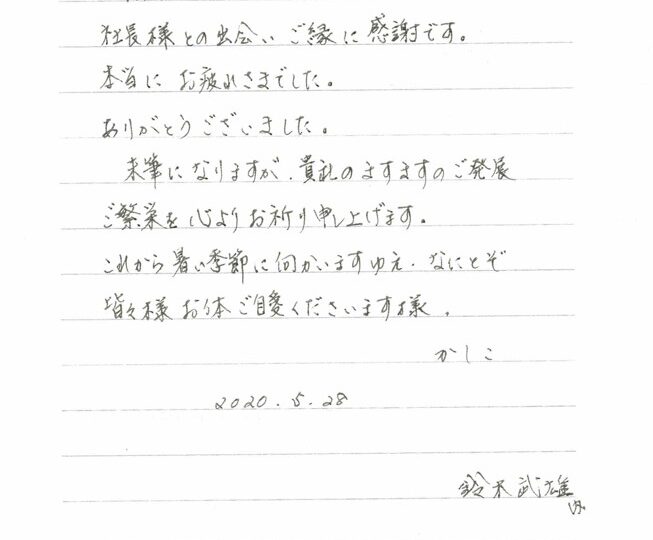 社長様との出会い ご縁に感謝です。
本当に お疲れさまでした。
ありがとうございました。
末筆になりますが、貴社のますますのご発展
ご繁栄を心よりお祈り申し上げます。
これから暑い季節に向かいますゆえ、なにとぞ
皆々様 お体ご自愛くださいます様、
かしこ
2020.5.28
鈴木武雄
内